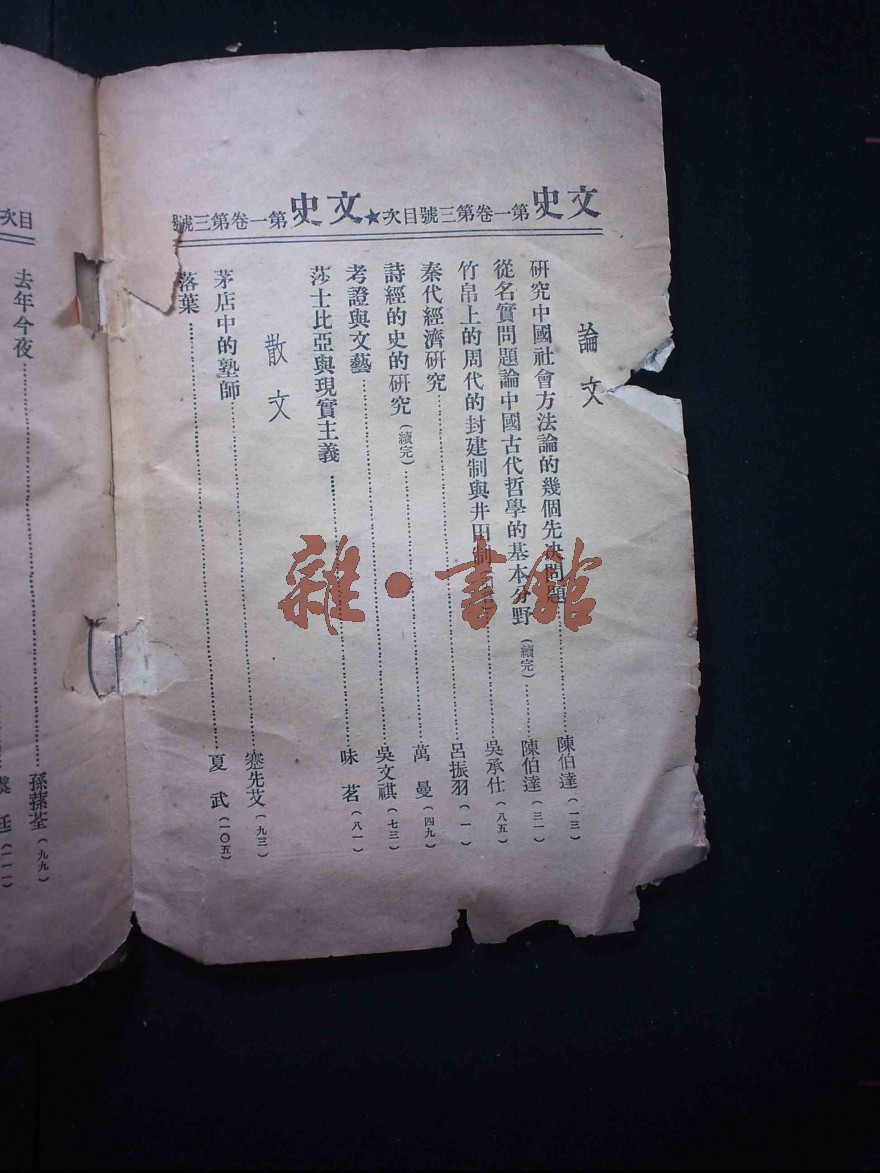 文史第一卷第三號目次★文史第一卷第三號
論文
研究中國社會方法論的幾個先決問題……陳伯達(一三)
從名實問題論中國古代哲學的基本分野(續完)……陳伯達(三一)
竹帛上的周代的封建制與井田制……吳承仕(八五)
秦代經濟研究……呂振羽(一)
詩經的史的研究(續完)……萬曼(四九)
考證與文藝……吳文祺(七三)
莎士比亞與現實主義……味茗(八一)
散文
茅店中的塾師……蹇先艾(九三)
落葉……夏武(一〇五)
目次
去年今夜……孫蓀荃(九九)
廷(一一一)
雜·書館